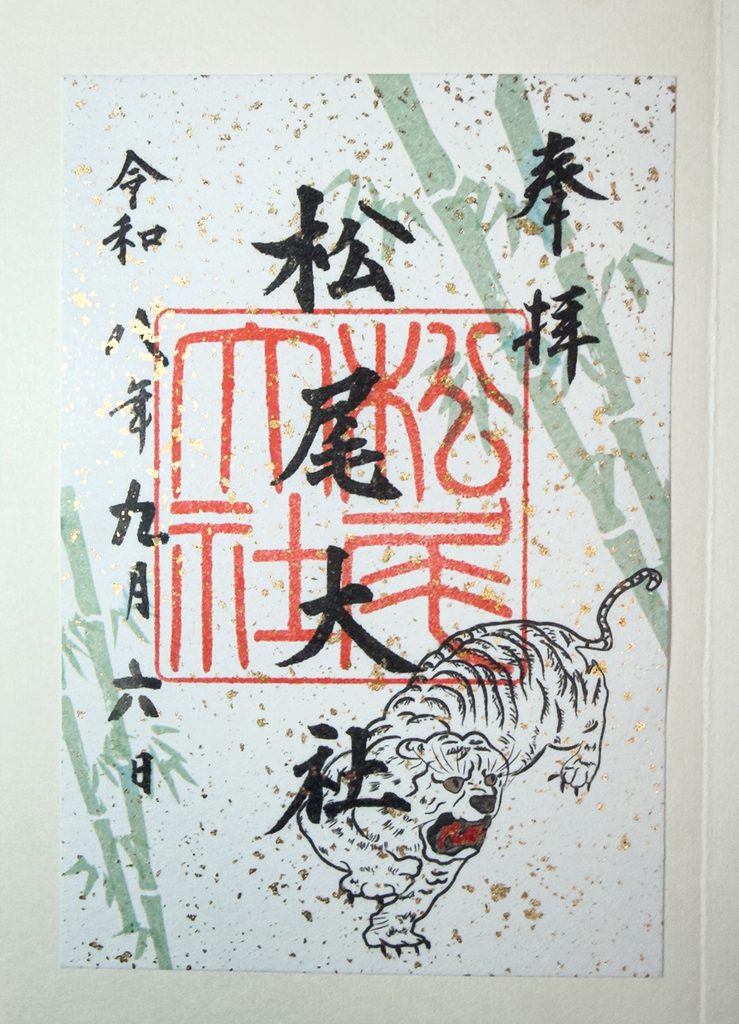 奉拝
松尾大社
松尾大社
令和八年九月六日